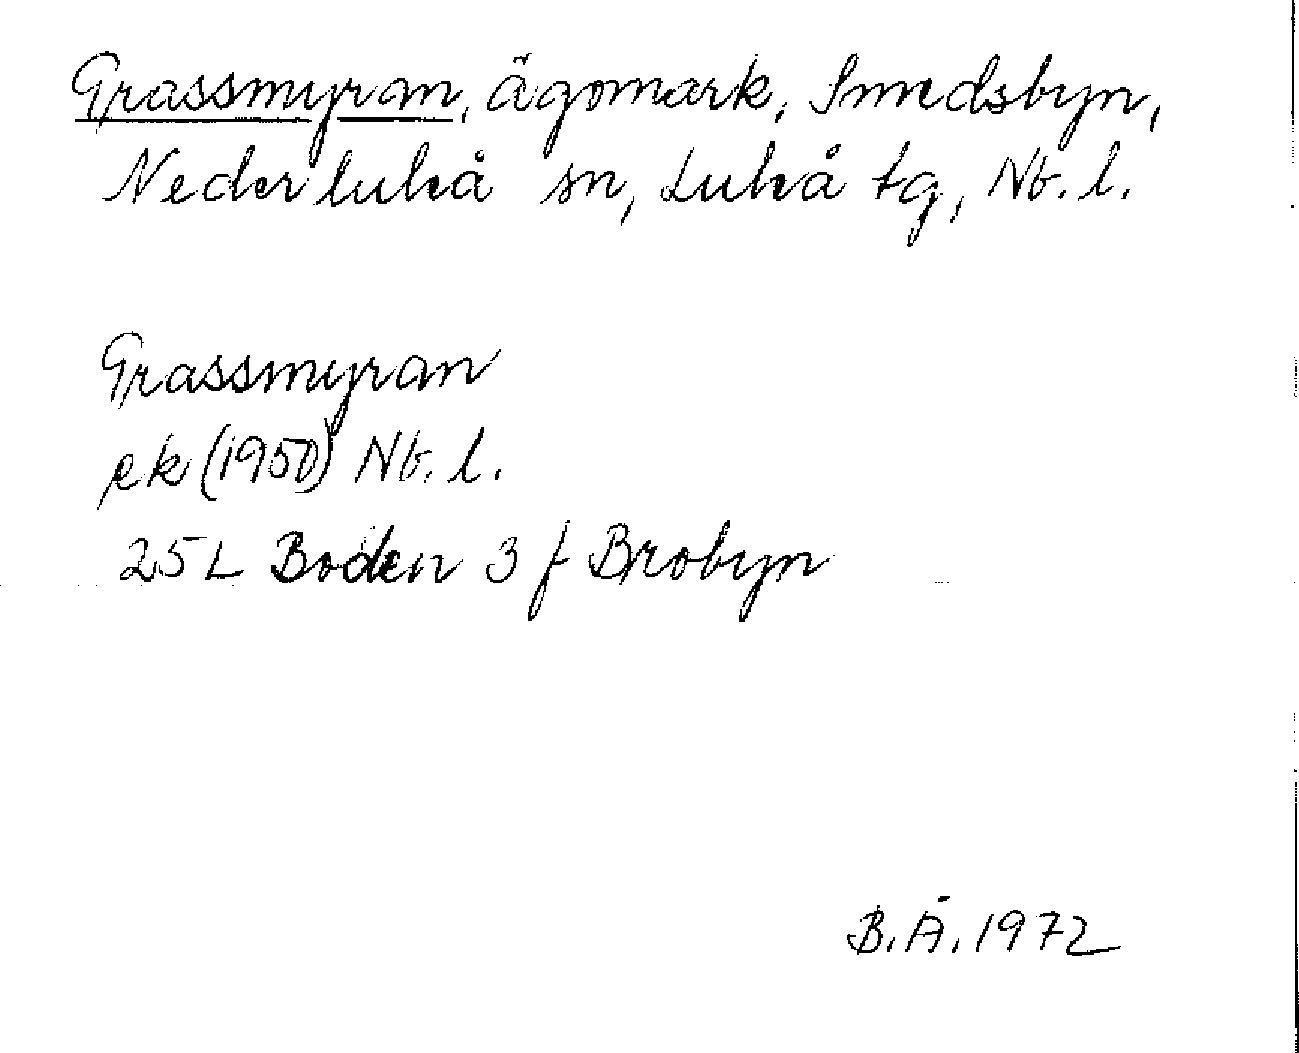 Grassmyran, ägomark, Smedsbyn,
Nederluleå sn, Luleå tg, Nb. l.
Grassmyran
ek (1950) Nb. l.
25 L Boden 3 f Brobyn
B. Å. 1972